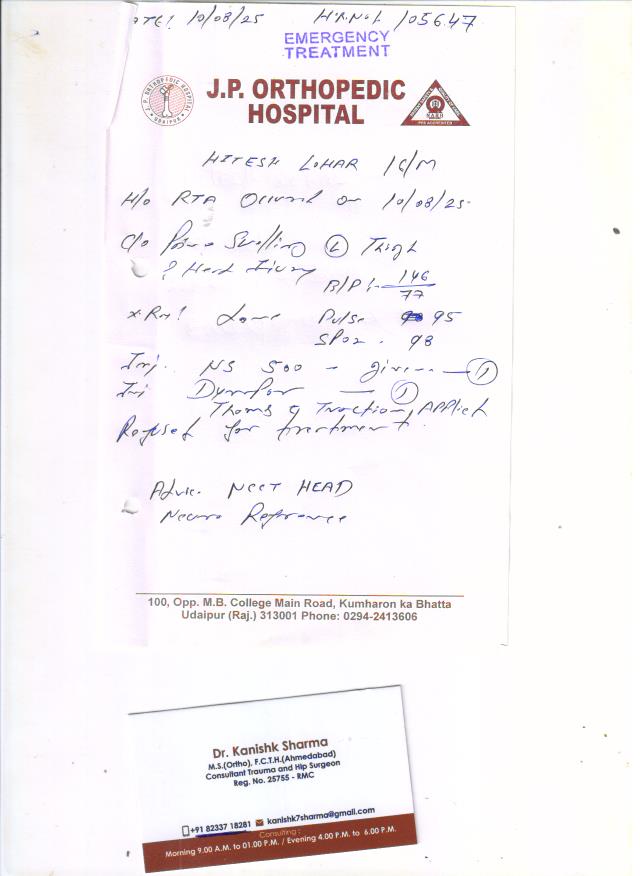 DATE! 10/08/25 H.R.No1. 105647
EMERGENCY
TREATMENT
J.P. ORTHOPEDIC
HOSPITAL
J. P. ORTHOPEDIC HOSPITAL
UDAIPUR
HITESH LOHAR 16/M
H/o RTA Occured on 10/08/25-
C/o Pain & Swelling (L) Thigh
? Head Injury
B/P:- 146/77
X-Ray! Done Pulse 95
SPO2 . 98
Inj. NS 500 - given — (1)
Inj Dynapar — (1)
Thomas Traction Applied
Refused for treatment.
Advice. NCCT HEAD
Neuro Reference
100, Opp. M.B. College Main Road, Kumharon ka Bhatta
Udaipur (Raj.) 313001 Phone: 0294-2413606
Dr. Kanishk Sharma
M.S.(Ortho), F.C.T.H.(Ahmedabad)
Consultant Trauma and Hip Surgeon
Reg. No. 25755 - RMC
+91 82337 18281 kanishk7sharma@gmail.com
Consulting :
Morning 9.00 A.M. to 01.00 P.M. / Evening 4.00 P.M. to 6.00 P.M.